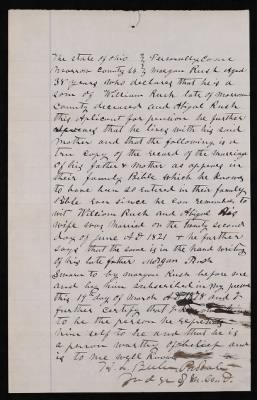 The state of Ohio } Personally Came
Morrow County SS } Morgan Rush Aged
38 years who declares that he is a
son of William Rush late of Morrow
County deceased and Abigal Rush
this Aplicant for pension he further
that he lives with his said
Mother and that the following is a
true copy of the record of the Marriage
of his father & Mother as appears in
their family Bible which he knows
to have been so entered in their family
Bible Ever since he can remember to
wit William Rush and Abigal His
wife was Married on the twenty second
day of June AD 1821 & he further
says that the same is in the hand writing
of his late father Morgan Rush
Sworn to by Morgan Rush before me
and by him subscribed in my presence
this 19th day of March AD 1878 and I
further certify that
to be the person he represents
him self to be and that he is
a person worthy of belief and
is to me well known